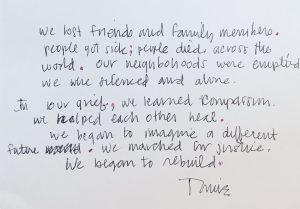 we lost friends and family members.
people got sick; people died across the
world. our neighborhoods were emptied
we were silenced and alone.
In our grief, we learned compassion.
we helped each other heal.
we began to imagine a different
future. we marched for justice.
we began to rebuild.